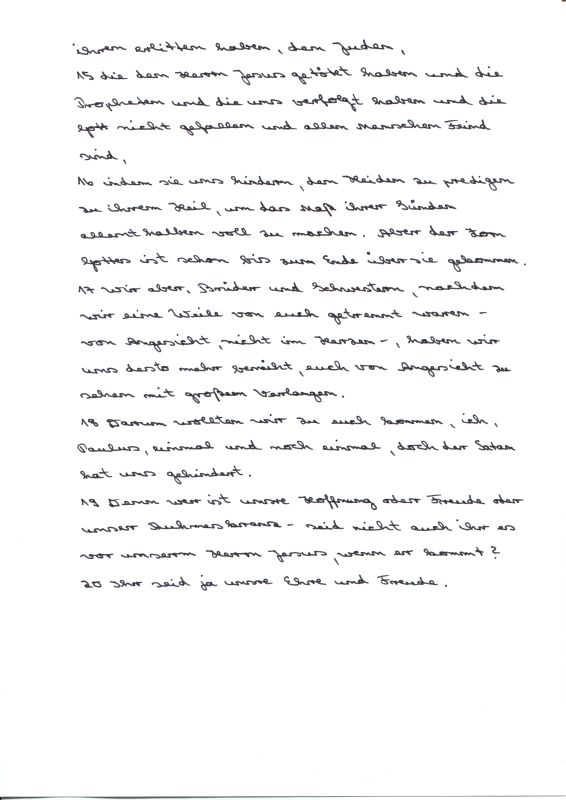 ihnen erlitten haben, den Juden,
15 die den Herrn Jesus getötet haben und die
Propheten und die uns verfolgt haben und die
Gott nicht gefallen und allen Menschen Feind
sind,
16 indem sie uns hindern, den Heiden zu predigen
zu ihrem Heil, um das Maß ihrer Sünden
allenthalben voll zu machen. Aber der Zorn
Gottes ist schon bis zum Ende über sie gekommen.
17 Wir aber, Brüder und Schwestern, nachdem
wir eine Weile von euch getrennt waren –
von Angesicht, nicht im Herzen –, haben wir
uns desto mehr bemüht, euch von Angesicht zu
sehen mit großem Verlangen.
18 Darum wollten wir zu euch kommen, ich,
Paulus, einmal und noch einmal, doch der Satan
hat uns gehindert.
19 Denn wer ist unsre Hoffnung oder Freude oder
unser Ruhmeskranz – seid nicht auch ihr es
vor unserm Herrn Jesus, wenn er kommt?
20 Ihr seid ja unsre Ehre und Freude.